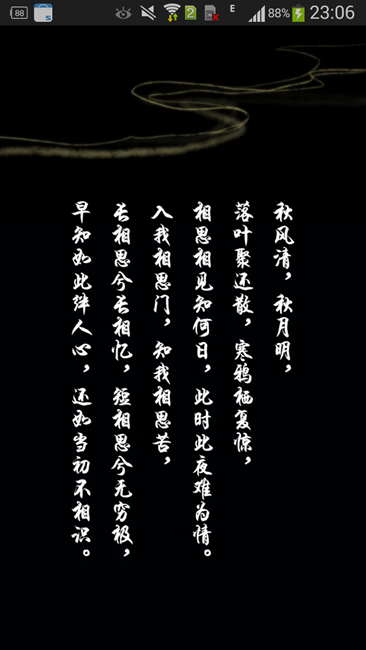 88 S 2 E 88% 23:06
秋风清，秋月明，
落叶聚还散，寒鸦栖复惊，
相思相见知何日，此时此夜难为情。
入我相思门，知我相思苦，
长相思兮长相忆，短相思兮无穷极，
早知如此绊人心，还如当初不相识。